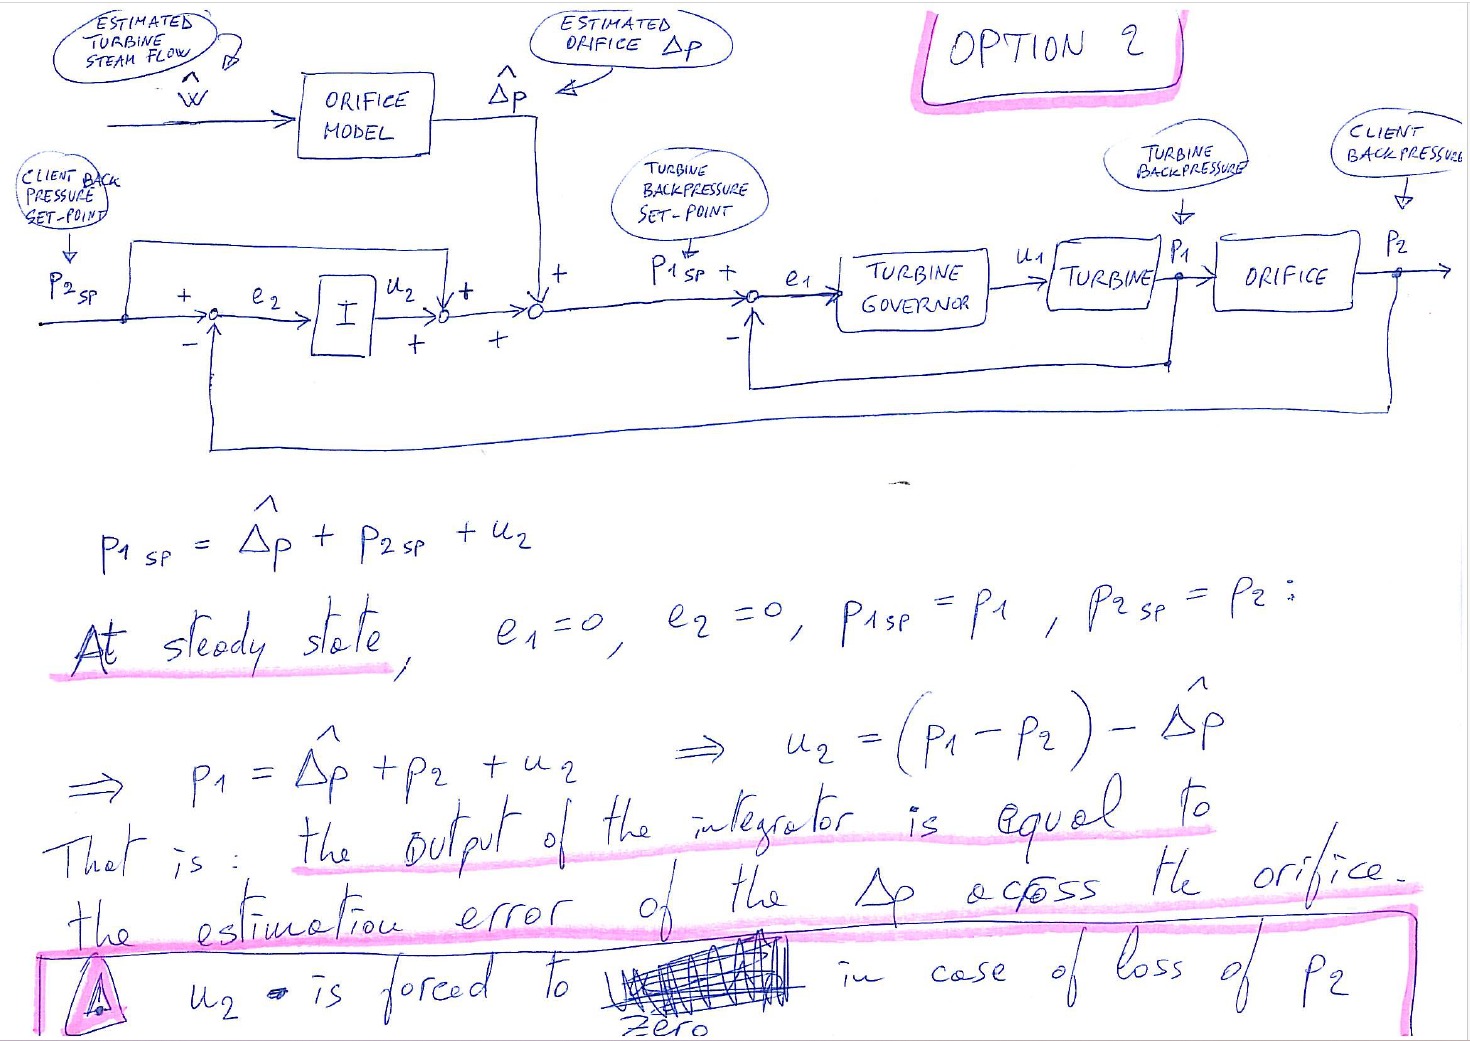 ESTIMATED
TURBINE
STEAM FLOW
ŵ
ORIFICE
MODEL
ESTIMATED
ORIFICE Δp
Δ̂p
OPTION 2
CLIENT BACK
PRESSURE
SET-POINT
P2 SP
+
-
e2
I
u2
+
+
+
+
TURBINE
BACKPRESSURE
SET-POINT
P1 SP +
-
e1
TURBINE
GOVERNOR
u1
TURBINE
TURBINE
BACKPRESSURE
P1
ORIFICE
CLIENT
BACKPRESSURE
P2
P1 SP = Δ̂p + P2 SP + u2
At steady state, e1 = 0, e2 = 0, P1 SP = P1, P2 SP = P2 :
⇒ P1 = Δ̂p + P2 + u2 ⇒ u2 = (P1 - P2) - Δ̂p
That is : the output of the integrator is equal to
the estimation error of the Δp across the orifice.
! u2 is forced to zero in case of loss of P2